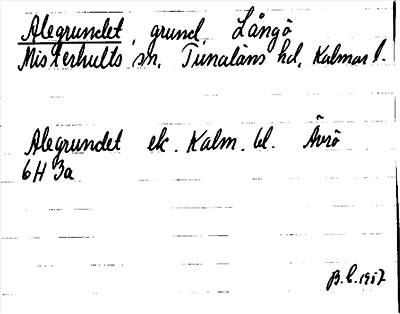 Alegrundet, grund, Långö
Misterhults sn. Tunaläns hd, Kalmar l.
Alegrundet ek. Kalm. bl. Ävrö
6H 3a